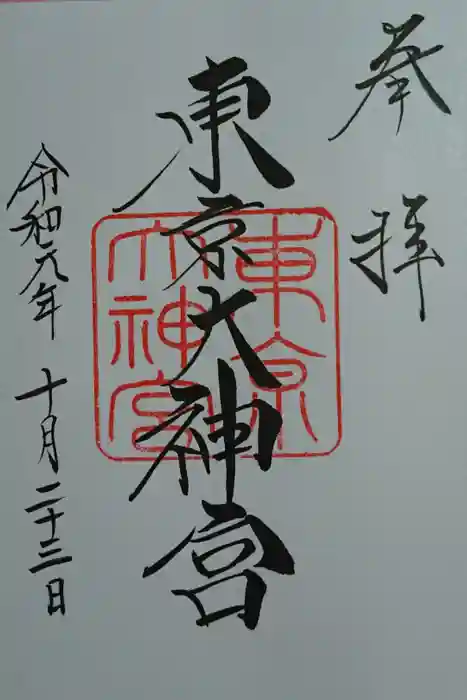 奉拝
東京大神宮
東京
大神宮
令和元年十月二十三日